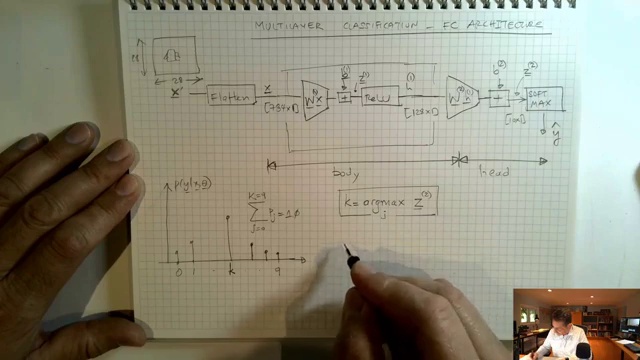 MULTILAYER CLASSIFICATION - FC ARCHITECTURE
28
28
x'
Flatten
x
[784x1]
W⁽¹⁾x
b⁽¹⁾
+
z⁽¹⁾
ReLU
h⁽¹⁾
[128x1]
W⁽²⁾h⁽¹⁾
b⁽²⁾
+
z⁽²⁾
[10x1]
SOFT
MAX
ŷ
body
head
p(y|x;θ)
K=9
∑ Pj = 1.0
j=0
0 1 . k 9
K = argmax z⁽²⁾
j